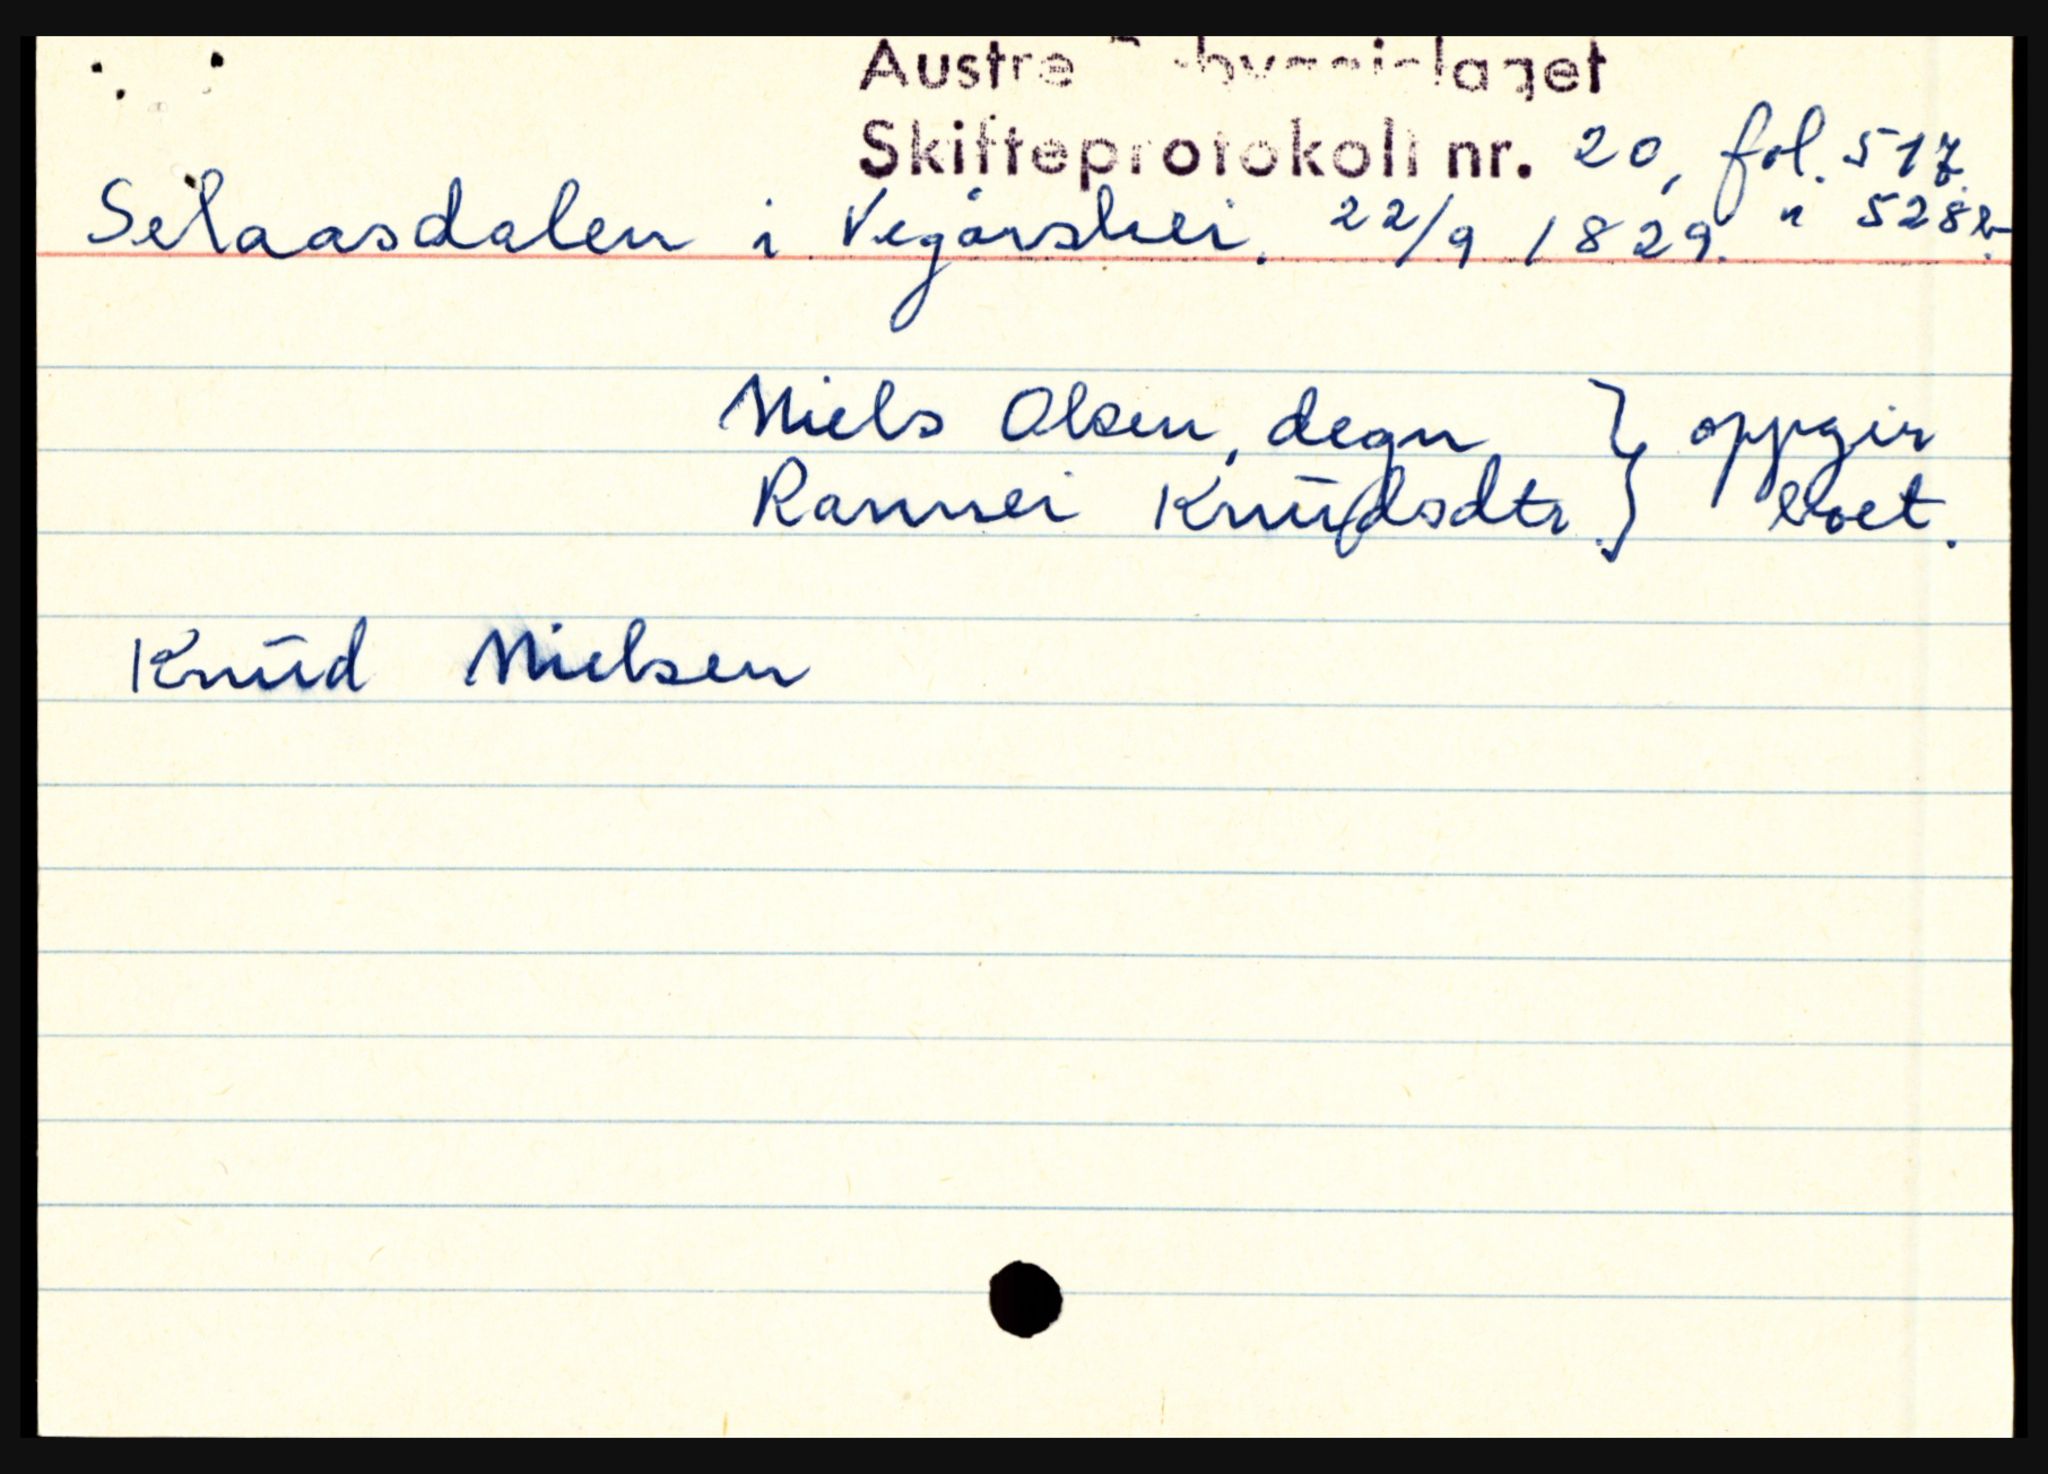 Austre
Skifteprotokoll nr. 20, fol. 517.
Selaasdalen i Vegårshei. 22/9 1829. " 528b.
Niels Olsen, degn } oppgir
Rannei Knudsdtr. } boet.
Knud Nielsen